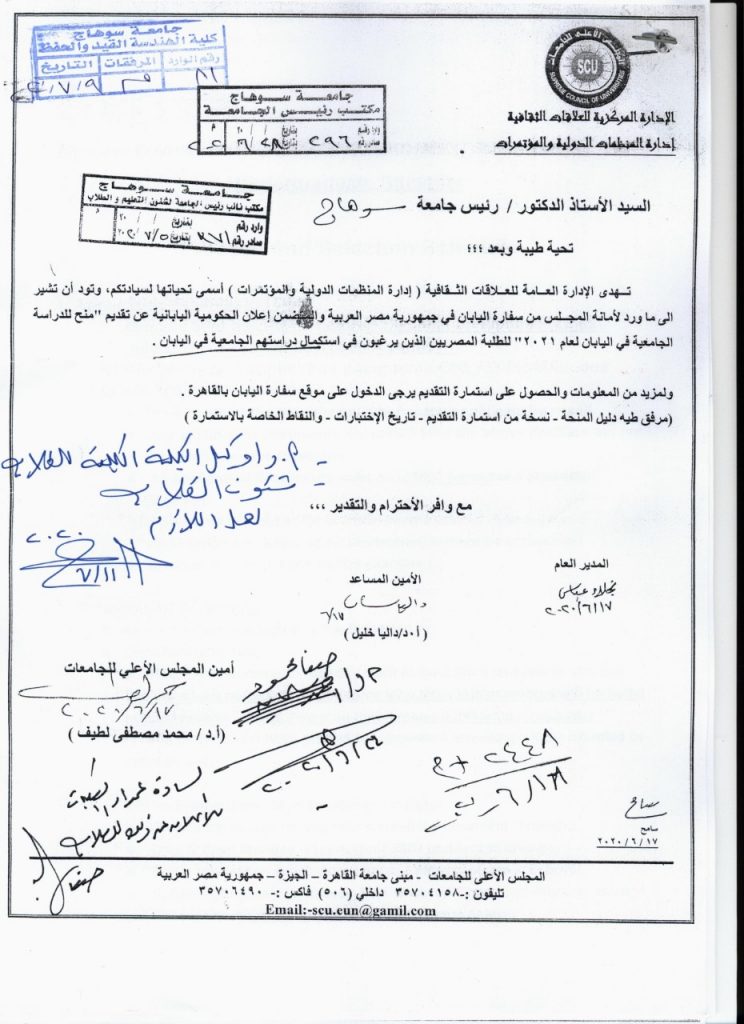 جامعة سوهاج
كلية الهندسة القيد والحفظ
رقم الوارد
المرفقات
التاريخ
SCU
SUPREME COUNCIL OF UNIVERSITIES
جامعة سوهاج
مكتب رئيس الجامعة
٢٩٦
الإدارة المركزية للعلاقات الثقافية
إدارة المنظمات الدولية والمؤتمرات
جامعة سوهاج
مكتب نائب رئيس الجامعة لشئون التعليم والطلاب
وارد رقم
صادر رقم
بتاريخ
السيد الأستاذ الدكتور / رئيس جامعة سوهاج
تحية طيبة وبعد ،،،
تهدى الإدارة العامة للعلاقات الثقافية ( إدارة المنظمات الدولية والمؤتمرات ) أسمى تحياتها لسيادتكم، وتود أن تشير
الى ما ورد لأمانة المجلس من سفارة اليابان في جمهورية مصر العربية إعلان الحكومية اليابانية عن تقديم "منح للدراسة
الجامعية في اليابان لعام ٢٠٢١" للطلبة المصريين الذين يرغبون في استكمال دراستهم الجامعية في اليابان .
ولمزيد من المعلومات والحصول على استمارة التقديم يرجى الدخول على موقع سفارة اليابان بالقاهرة .
(مرفق طيه دليل المنحة - نسخة من استمارة التقديم - تاريخ الإختبارات - والنقاط الخاصة بالاستمارة )
شئون الطلاب
لعمل اللازم
٢٠٢٠
٧/١١
مع وافر الأحترام والتقدير ،،،
المدير العام
نجلاء عباس
٢٠٢٠/٦/١٧
الأمين المساعد
٦/١٧
( أ.د/داليا خليل )
أمين المجلس الأعلي للجامعات
٢٠٢٠/٦/١٧
(أ.د/ محمد مصطفى لطيف )
صفا محمود
٢٤٤٨
السادة عمداء الكليات
سامح
سامح
٢٠٢٠/٦/١٧
المجلس الأعلي للجامعات - مبنى جامعة القاهرة – الجيزة – جمهورية مصر العربية
تليفون :-٣٥٧٠٤١٥٨ داخلي (٥٠٦) فاكس :- ٣٥٧٠٦٤٩٠
Email:-scu.eun@gamil.com